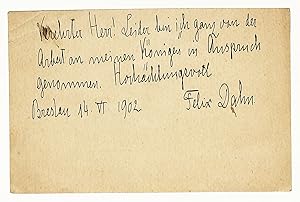 Verehrter Herr! Leider bin ich ganz von der
Arbeit an meinen Königen in Anspruch
genommen. Hochachtungsvoll
Breslau 14. VI 1902 Felix Dahn.